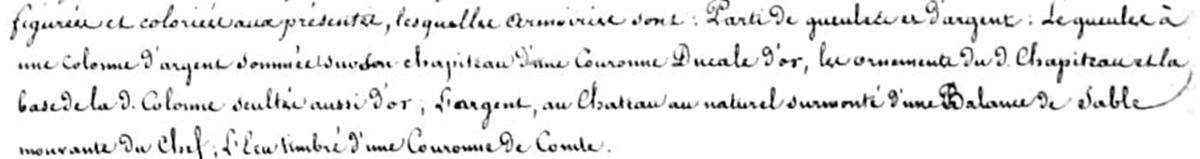 figurées et coloriées aux présentes, lesquelles armoiries sont : Parti de gueules et d'argent : Le gueules à
une Colonne d'argent sommée sur son chapiteau d'une Couronne Ducale d'or, les ornements du d. Chapiteau et la
base de la d. Colonne scultés aussi d'or ; L'argent, au Chateau au naturel surmonté d'une Balance de Sable
mouvante du Chef ; L'Ecu timbré d'une Couronne de Comte.